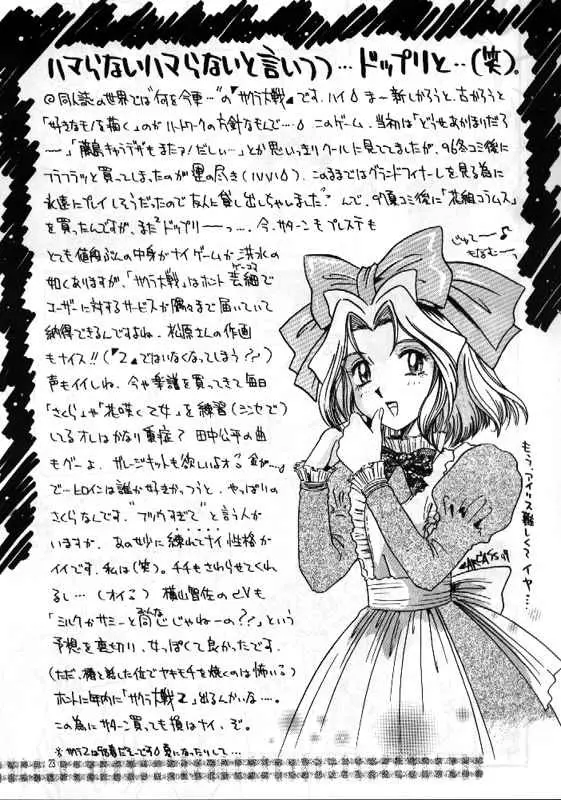 ハマらないハマらないと言いつつ…ドップリと…(笑)。
◎同人誌の世界では"何を今更…"の『サクラ大戦』です、ハイ。ま〜新しかろうと、古かろうと
「好きなモノを描く」のがハートワークの方針なもんで…。このゲーム、当初は「どうせあかほりだろ
〜」「藤島キャラデザもまたァ!だしィ…」とか思いっきりクールに見てましたが、96冬コミ後に
フラフラッと買ってしまったのが運の尽き(いい)。このままではグランドフィナーレを見る為に
永遠にプレイしそうだったので友人に貸し出しちゃいました。んで、97夏コミ後に「花組コラムス」
を買ったんですが、またドップリ──っ…。今、サターンもプレステも
とても値段ぶんの中身がナイゲームが洪水の
如くありますが、「サクラ大戦」はホント芸細で
ユーザーに対するサービスが隅々まで届いていて
納得できるんですよね。松原さんの作画
もナイス!!(『2』ではいなくなってしまう??)
声もイイしね。今や楽譜を買ってきて毎日
「さくら」や「花咲く乙女」を練習(シンセで)
しているオレはかなり重症?田中公平の曲
もグーよ。ガレージキットも欲しいよオる 金が…。
で…ヒロインは誰が好きかっつうと、やっぱりの
さくらなんです。"フツウすぎて"と言う人が
いますが、あの妙に練れてナイ性格が
イイです。私は(笑)。チチもさわらせてくれ
るし…(オイ)横山智佐のCVも
「ミルクがサミーと同じじゃねーの??」という
予想を裏切り、女っぽくて良かったです。
(ただ、椿と話した位でヤキモチを焼くのは怖いる)
ホントに年内に「サクラ大戦2」出るんかいな…。
この為にサターン買っても損はナイ、ぞ。
じゅて〜♪
もなむ〜っ
もう、アイリス難しくてイヤ…。
23